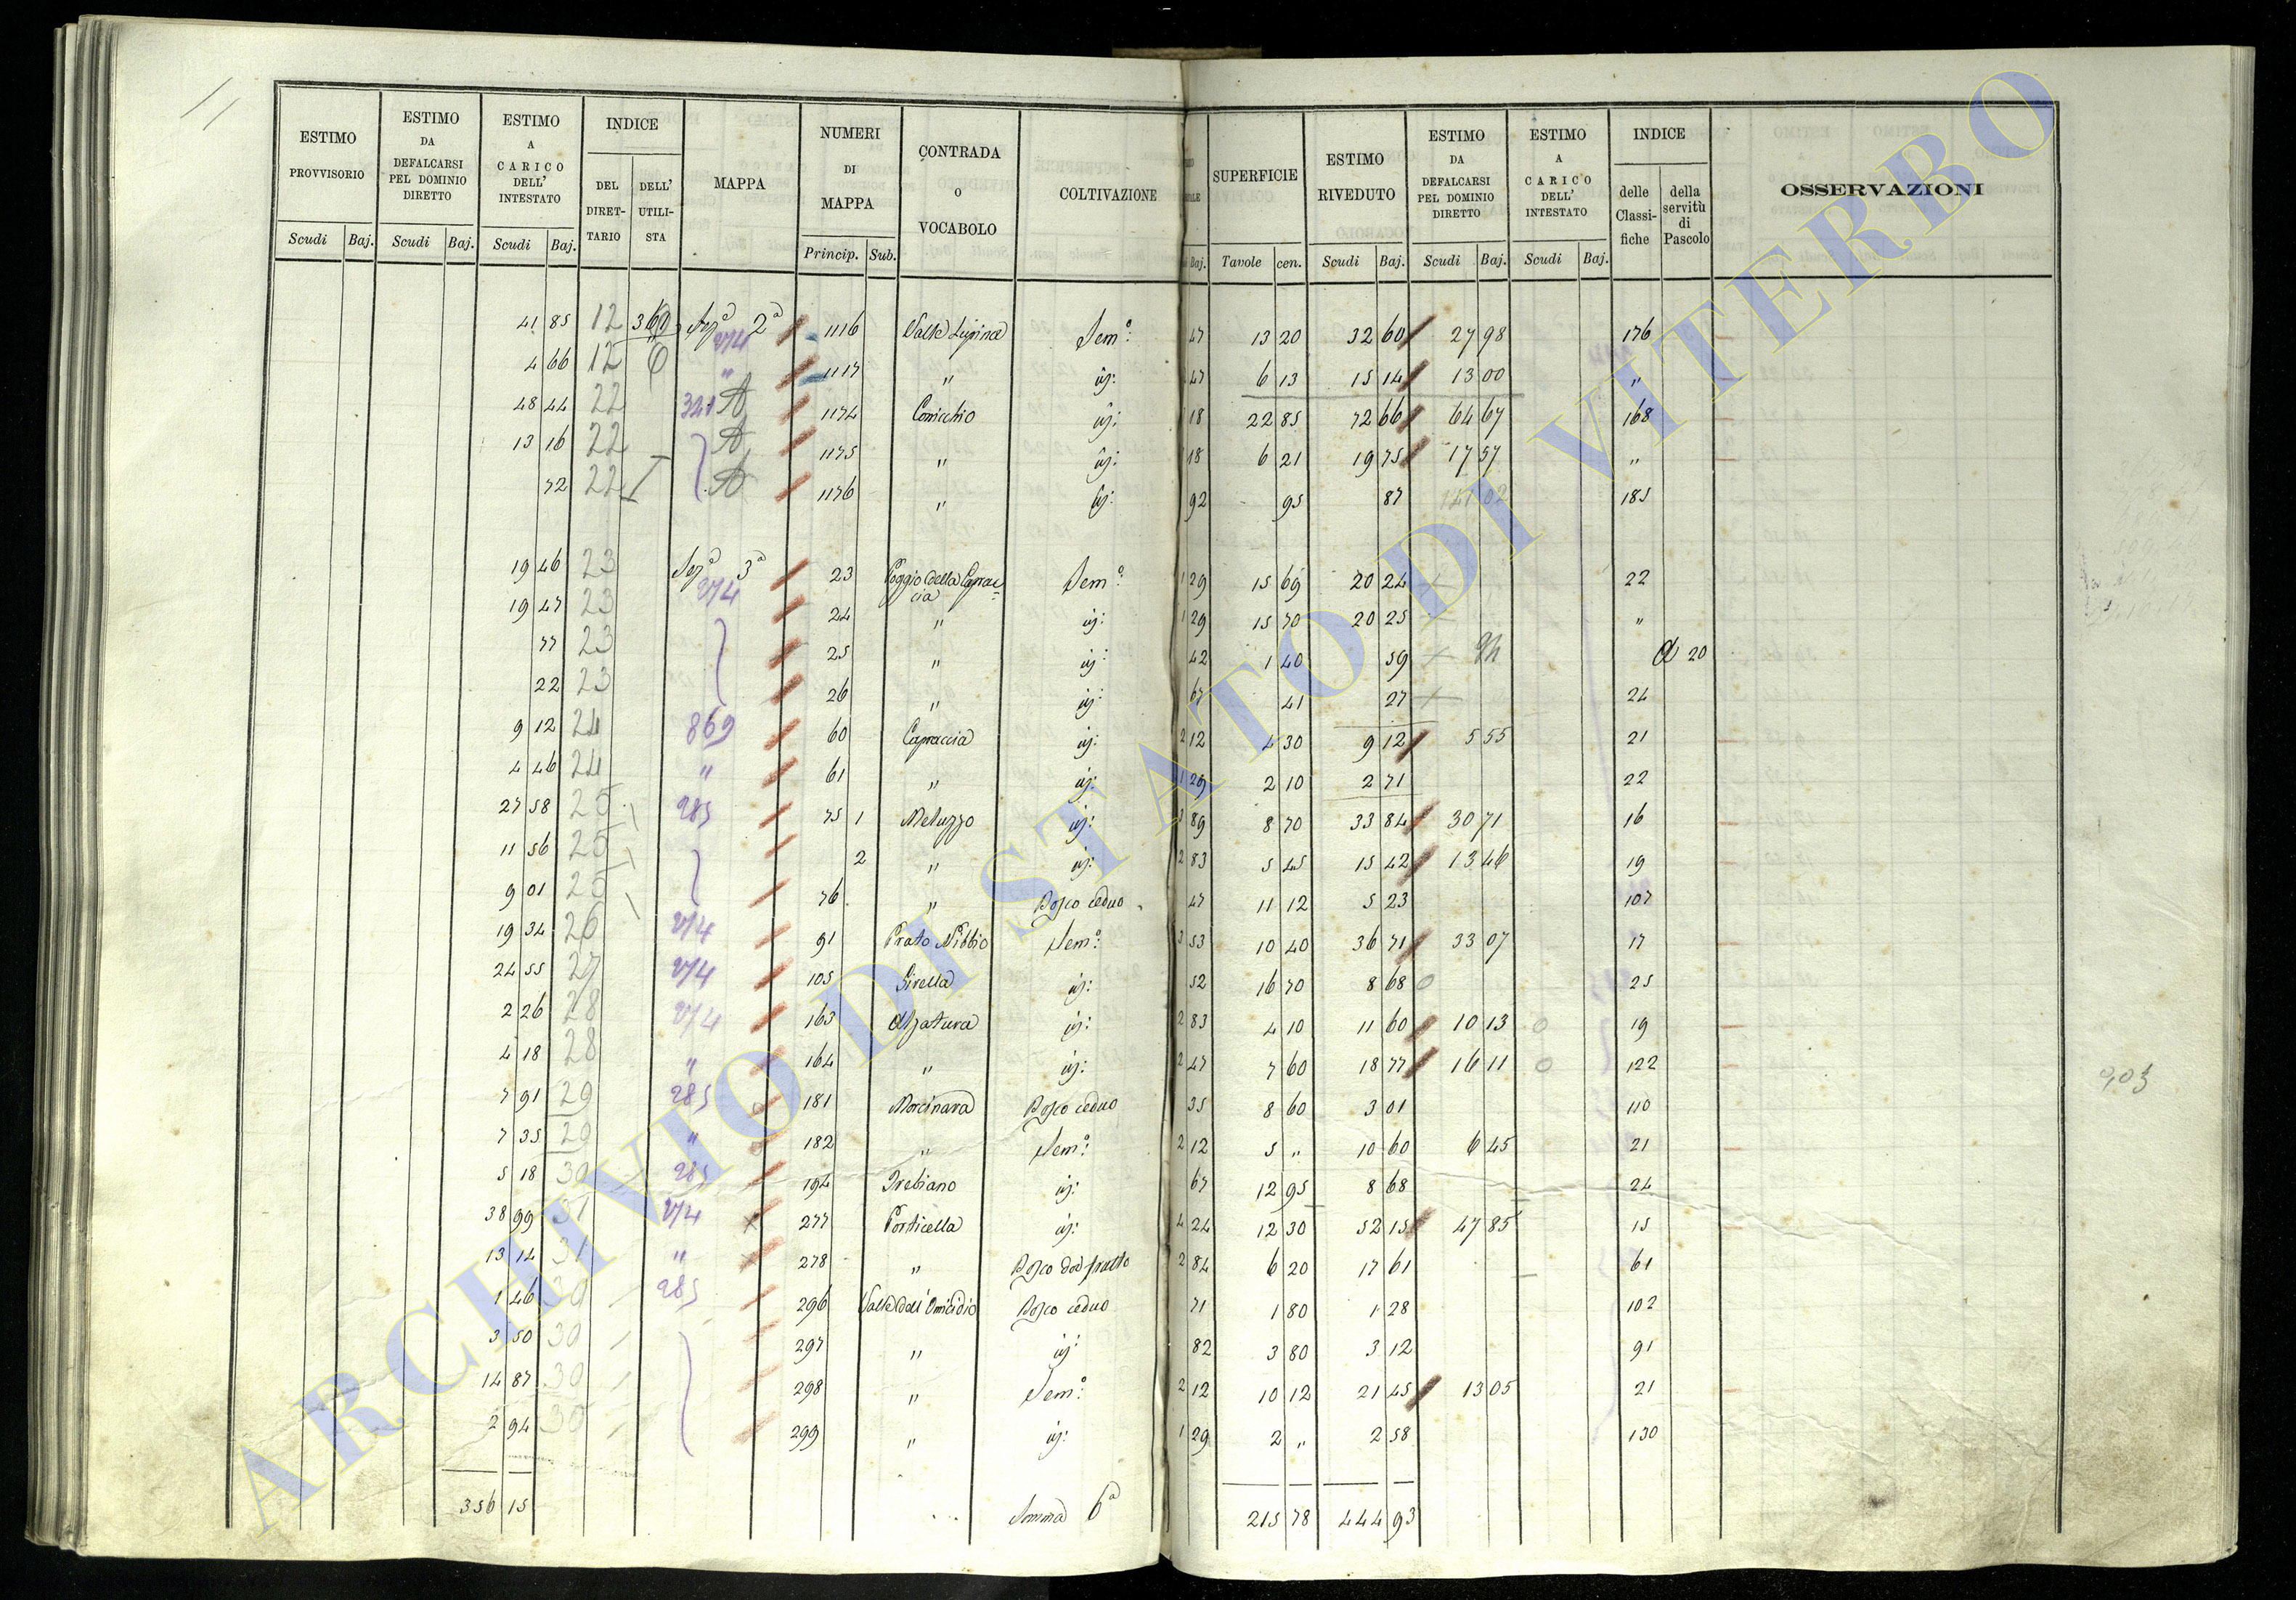 ESTIMO PROVVISORIO Scudi Baj.
ESTIMO DA DEFALCARSI PEL DOMINIO DIRETTO Scudi Baj.
ESTIMO A CARICO DELL' INTESTATO Scudi Baj.
INDICE DEL DIRETTARIO DELL' UTILISTA
MAPPA
NUMERI DI MAPPA Princip. Sub.
CONTRADA O VOCABOLO
COLTIVAZIONE
Baj.
SUPERFICIE Tavole cen.
ESTIMO RIVEDUTO Scudi Baj.
ESTIMO DA DEFALCARSI PEL DOMINIO DIRETTO Scudi Baj.
ESTIMO A CARICO DELL' INTESTATO Scudi Baj.
INDICE delle Classifiche della servitù di Pascolo
OSSERVAZIONI
41 85 12 369 Sez.a 2a 274 1116 Valle Lupina Sem.o: 47 13 20 32 60 27 98 176
4 66 12 6 " 1117 " id: 47 6 13 15 14 13 00 "
48 44 22 321 A 1174 Cornicchio id: 18 22 85 72 66 64 67 168
13 16 22 A 1175 " id: 18 6 21 19 75 17 57 "
72 22 A 1176 " id: 92 95 87 141 02 185
19 46 23 Sez.a 3a 274 23 Poggio della Capraccia Sem.o: 1 29 15 69 20 24 22
19 47 23 24 " id: 1 29 15 70 20 25 "
77 23 25 " id: 42 1 40 59 20
22 23 26 " id: 67 41 27 24
9 12 24 869 60 Capraccia id: 2 12 4 30 9 12 5 55 21
4 46 24 " 61 " id: 1 29 2 10 2 71 22
27 58 25 285 75 1 Meluzzo id: 3 89 8 70 33 84 30 71 16
11 56 25 2 " id: 2 83 5 45 15 42 13 46 19
9 01 25 76 " Bosco ceduo 47 11 12 5 23 107
19 34 26 274 91 Prato Nibbio Sem.o: 3 53 10 40 36 71 33 07 17
24 55 27 274 105 Girella id: 52 16 70 8 68 0 25
2 26 28 274 163 Alzatura id: 2 83 4 10 11 60 10 13 0 19
4 18 28 " 164 " id: 2 47 7 60 18 77 16 11 0 122
7 91 29 285 181 Morcinara Bosco ceduo 35 8 60 3 01 110
7 35 29 " 182 " Sem.o: 2 12 5 " 10 60 6 45 21
5 18 30 285 194 Trebiano id: 67 12 95 8 68 24
38 99 31 274 277 Porticella id: 4 24 12 30 52 15 47 85 15
13 14 31 " 278 " Bosco da frutto 2 84 6 20 17 61 61
1 46 30 285 296 Valle dell'Omicidio Bosco ceduo 71 1 80 1 28 102
3 50 30 297 " id: 82 3 80 3 12 91
14 87 30 298 " Sem.o: 2 12 10 12 21 45 13 05 21
2 94 30 299 " id: 1 29 2 " 2 58 130
356 15 Somma 6a 215 78 444 93
ARCHIVIO DI STATO DI VITERBO